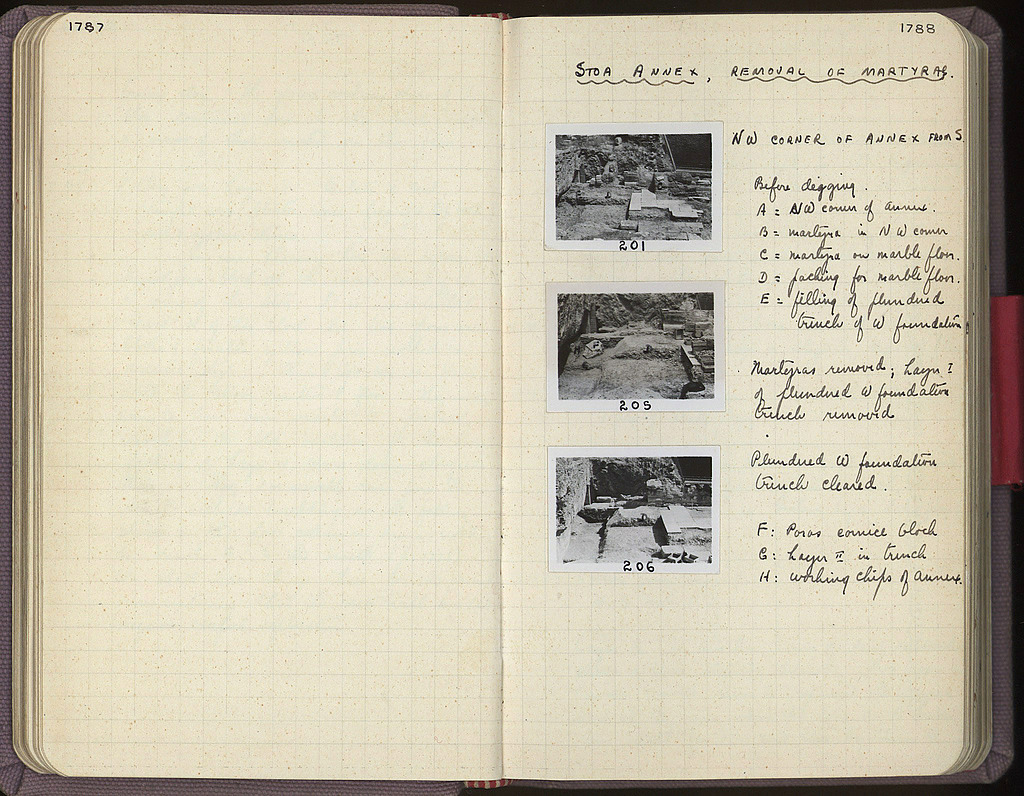 1787
1788
STOA ANNEX, REMOVAL OF MARTYRAS.
NW CORNER OF ANNEX FROM S.
Before digging.
A = NW corner of annex.
B = martyra in NW corner
C = martyra on marble floor.
D = packing for marble floor.
E = filling of plundred
trench of W foundation
201
Martyras removed; Layer I
of plundred W foundation
trench removed
205
Plundred W foundation
trench cleared.
F: Poros cornice block
G: Layer II in trench
H: working chips of annex.
206